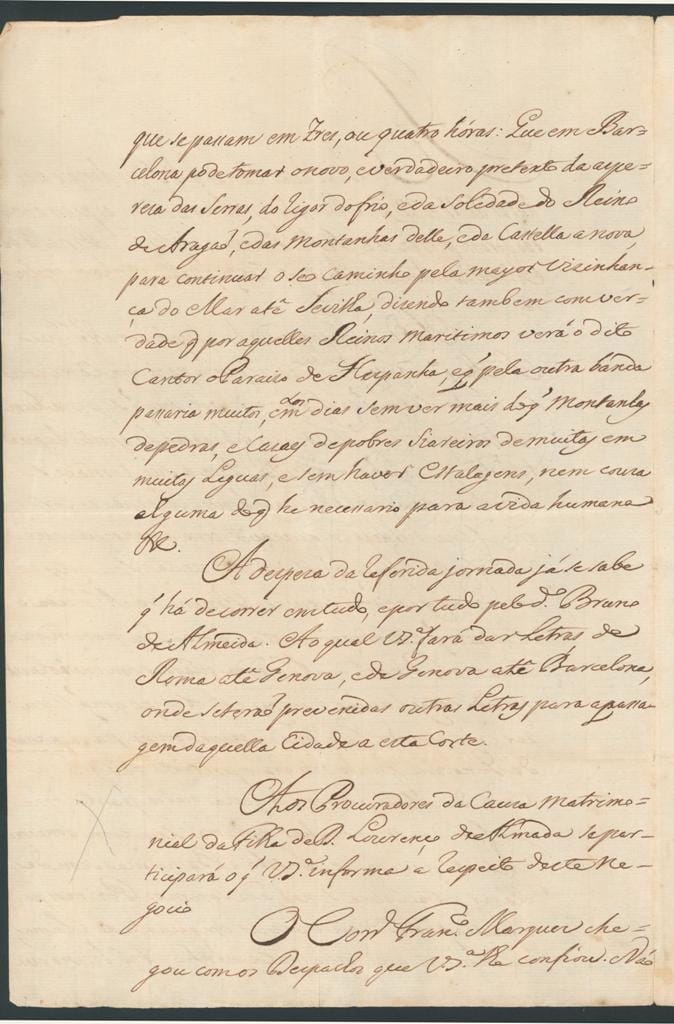 que se passam em Tres, ou quatro hóras: Que em Bar=
celona pode tomar o novo, e verdadeiro pretexto da aspe=
reza das Serras, do rigor do frio, e da Soledade do Reino
de Aragaõ, e das Montanhas delle, e da Castella a nova,
para continuar o seo Caminho pela mayor Visinhan=
ça do Mar atê Sevilha, dizendo tambem com ver=
dade q̃ por aquelles Reinos maritimos verá o dito
Cantor o Paraiso de Hespanha, e q̃ pela outra banda
passaria muitos, em dias sem ver mais do q̃ Montanhas
de pedras, e Cazas de pobres Siareiros de muitas em
muitas Leguas, e sem haver Estalagens, nem couza
alguma do q̃ he necessario para a vida humana
&c.
A despeza da referida jornada já se sabe
q̃ há de correr em tudo, e por tudo pelo d.º Bruno
de Almeida. Ao qual V.S.ª fará dar Letras de
Roma atê Genova, e de Genova atê Barcelona,
onde se teraõ prevenidas outras Letras para a passa=
gem daquella Cidade a esta Corte.
Aos Procuradores da Cauza Matrimo=
nial da filha de D. Lourenço de Almada se par=
ticipará o q̃ V.S.ª informa a respeito deste Ne=
gocio
O Corr.º Fran.co Marques che=
gou com os Despachos que V.S.ª lhe confiou. Não